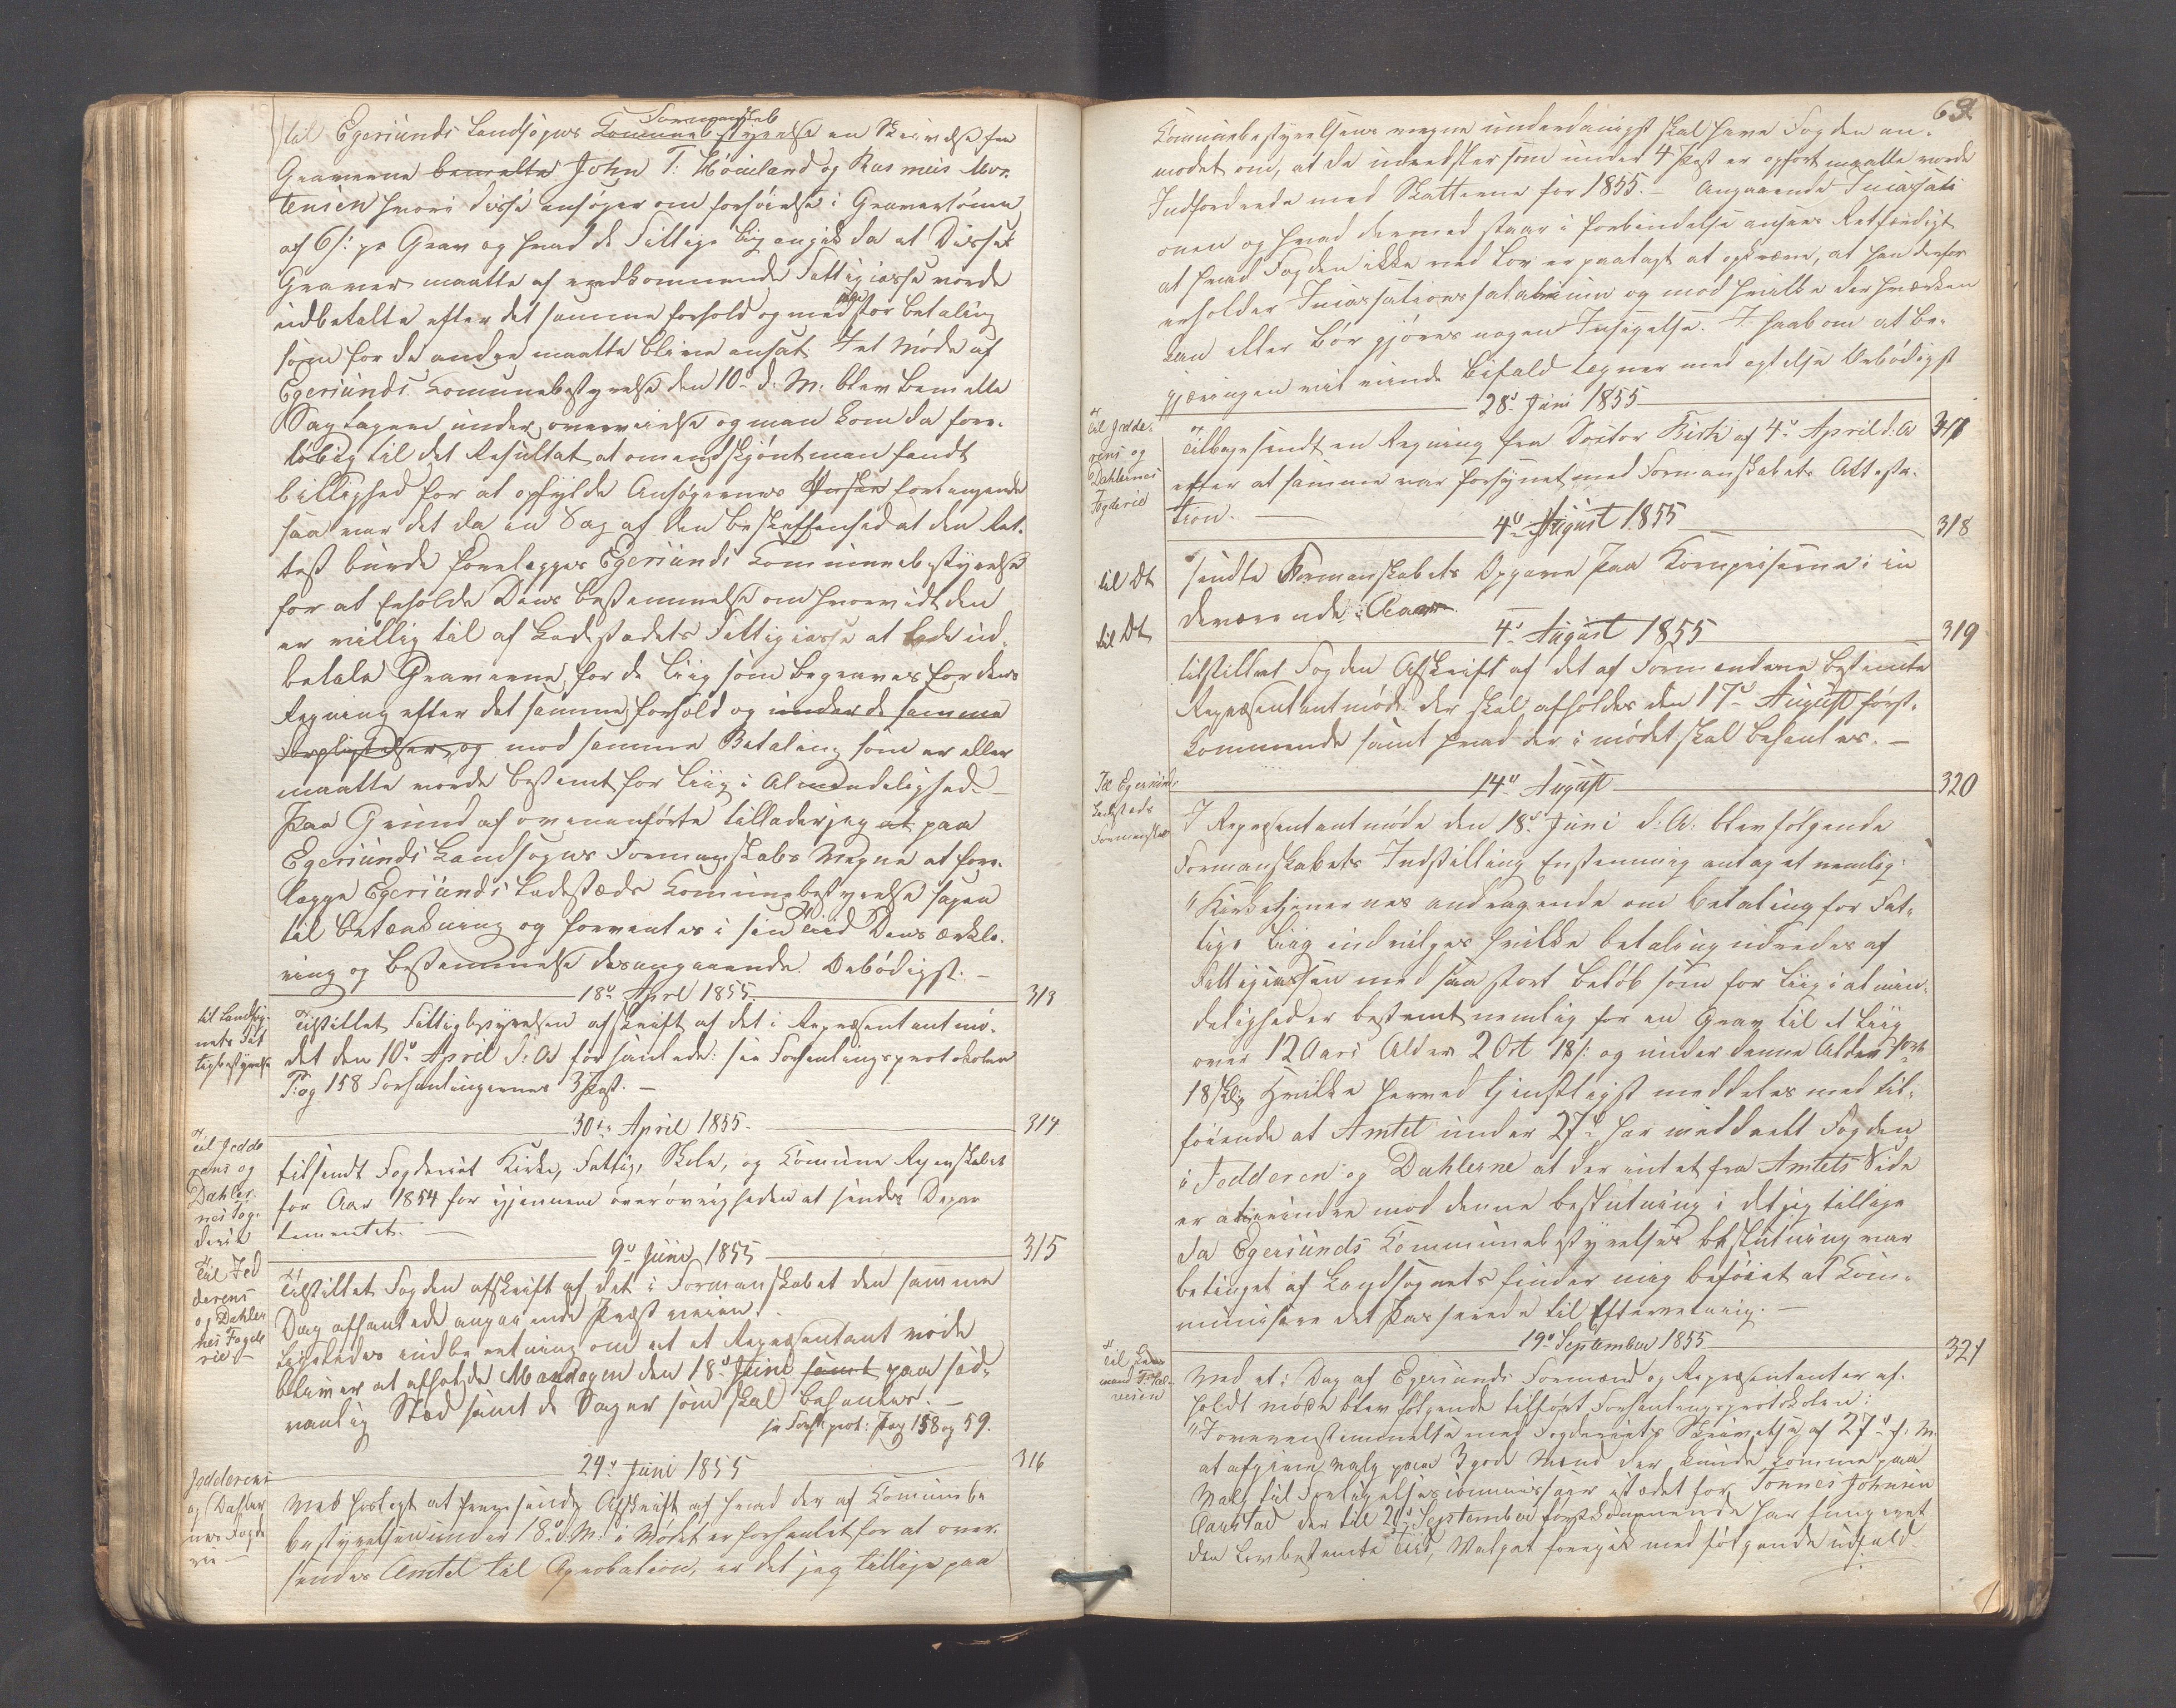 Formanskab
til Egersunds Landsogns Communebestyrelse en Skrivelse fra
Graverne bemelte John T: Höiland og Rasmus Mor-
tensen hvori disse ansøger om forhöielse i Graverlönnen
af 6 s: pr Grav og hvad de Fattige Liig angik da at Disses
Graver maatte af vedkommende Fattigcasse vorde
udbetalte efter det samme forhold og med stor betaling
som for de andre maatte blive ansat. I et Möde af
Egersunds Communebestyrelse den 10de d. M. blev bemelte
Sag tagen under overveielse og man kom da fore-
löbig til det Resultat at omendskjönt man fandt
billighed for at opfylde Ansögernes Önsker forlangende
saa var det da en Sag af den beskaffenhed at den Ret-
test burde forelegges Egersunds Communebestyrelse
for at erholde Dens bestemmelse om hvorvidt den
er villig til af Ladestedets Fattigcasse at lade ud-
betale Graverne for de Liig som begraves for dens
Regning efter det samme forhold og under de samme
forpligtelser og mod samme Betaling som er eller
maatte vorde bestemt for Liig i Almindelighed. —
Paa Grund af ovenanförte tillader jeg at paa
Egersunds Landsogns Formanskabs Vegne at fore-
legge Egersunds Ladesteds Communebestyrelse sagen
til betænkning og forventes i sin tiid Dens erklæ-
ring og bestemmelse desangaaende. Ærbödigst. —
18de Aprl 1855. 313
til Landsog-
nets Fat
tigbestyrelse
Tilstillet Fattigbestyrelsen afskrift af det i Repræsentantmö-
det den 10de April d: A forhandlede: see Forhandlingsprotokolen
Pag 158 Forhandlingernes 3 Post. —
30te April 1855. 314
Til Jedde
rens og
Dahler-
nes Fog-
derie
tilsendt Fogderiet Kirke, Fattig, Skole, og Commune Regnskabet
for Aar 1854 for igjennem överövrigheden at sendes Depar
tementet. —
9de Juni 1855 315
Til Jed
derens
og Dahler
nes Fogde
rie —
Tilstillet Fogden afskrift af det i Formanskabet den samme
Dag afhandlede angaaende Præst veien.
Ligeledes indberetning om at et Repræsentant möde
bliver at afholde Mandagen den 18de Juni samt paa sæd-
vanlig Sted samt de Sager som skal behandles. —
se Forh. prot: Pag 158 og 59.
24de Juni 1855 316
Jedderens
og Dahler
nes Fogde
rie —
Ved hoslagt at fremsende Afskrift af hvad der af Communebe
bestyrelsen under 18de d. M. i Mödet er forhandlet for at over-
sendes Amtet til Aprobation, er det jeg tillige paa
69
Communebestyrelsens vegne underdanigst skal have Fogden an-
modet om, at de udredsler som under 4 Post er opfört maatte vorde
Indfordrede med Skatterne for 1855. — Angaaende Incassati
onen og hvad dermed staar i forbindelse ansees Retfærdigt
at hvad Fogden ikke ved Lov er paalagt at opkræve, at han derfor
erholder Incassations salarium og mod hvilke der hverken
kan eller bör gjöres nogen Indsigelse. I haab om at be-
gjæringen vil vinde bifald tegner med agtelse Ærbödigst
28de Juni 1855 317
Til Jedde-
rens og
Dahlernes
Fogderie
Tilbagesendt en Regning fra Doctor Kirk af 4de April d: A
efter at samme var forsynet med Formanskabets Attesta-
tion. —
4de August 1855 318
til Dt
sendte Formanskabets Opgave paa Kornpriserne i in
deværende Aar.
4de August 1855 319
til Dt
tilstillet Fogden Afskrift af det af Formændene bestemte
Repræsentantmöde der skal afholdes den 17de August först-
kommende samt hvad der i mödet skal behandles. —
14de August 320
Til Egersunds
Ladesteds
Formanskab
I Repræsentantmöde den 18de Juni d. A. blev fölgende
Formanskabets Indstilling Enstemmig antaget nemlig:
"Kirketjenernes andragende om betaling for Fat-
tige Liig indvilges hvilke betaling udredes af
Fattigcassen med saa stort belöb som for Liig i almin-
delighed er bestemt nemlig for en Grav til et Liig
over 12 Aars Alder 2 Ort 18 s: og under denne Alder 1 ort
18 Skl, Hvilke herved tjenstligst meddeles med til-
föiende at Amtet under 27de har meddeelt Fogden
i Jedderen og Dahlerne at der intet fra Amtets Side
er at erindre mod denne beslutning i det jeg tillige
da Egersunds Communebestyrelses beslutning var
betinget af Landsognets finder mig beföiet at Com-
municere det Passerede til Efterretning. —
19de September 1855 321
Til Lens
mand
Ved et i Dag af Egersunds Formænd og Repræsentanter af-
holdt möde blev fölgende tilfört Forhandlingsprotokolen:
"I overenstemmelse med Fogderiets Skrivelse af 27de f. M.
at afgive valg paa 3 gode Mænd der kunde komme paa
Valg til Forligelsescommissair istedet for Tönnes Johnsen
Aarstad der til 20de September förstkommende har fungeret
den Lovbestemte tiid, Valget foregik med fölgende udfald